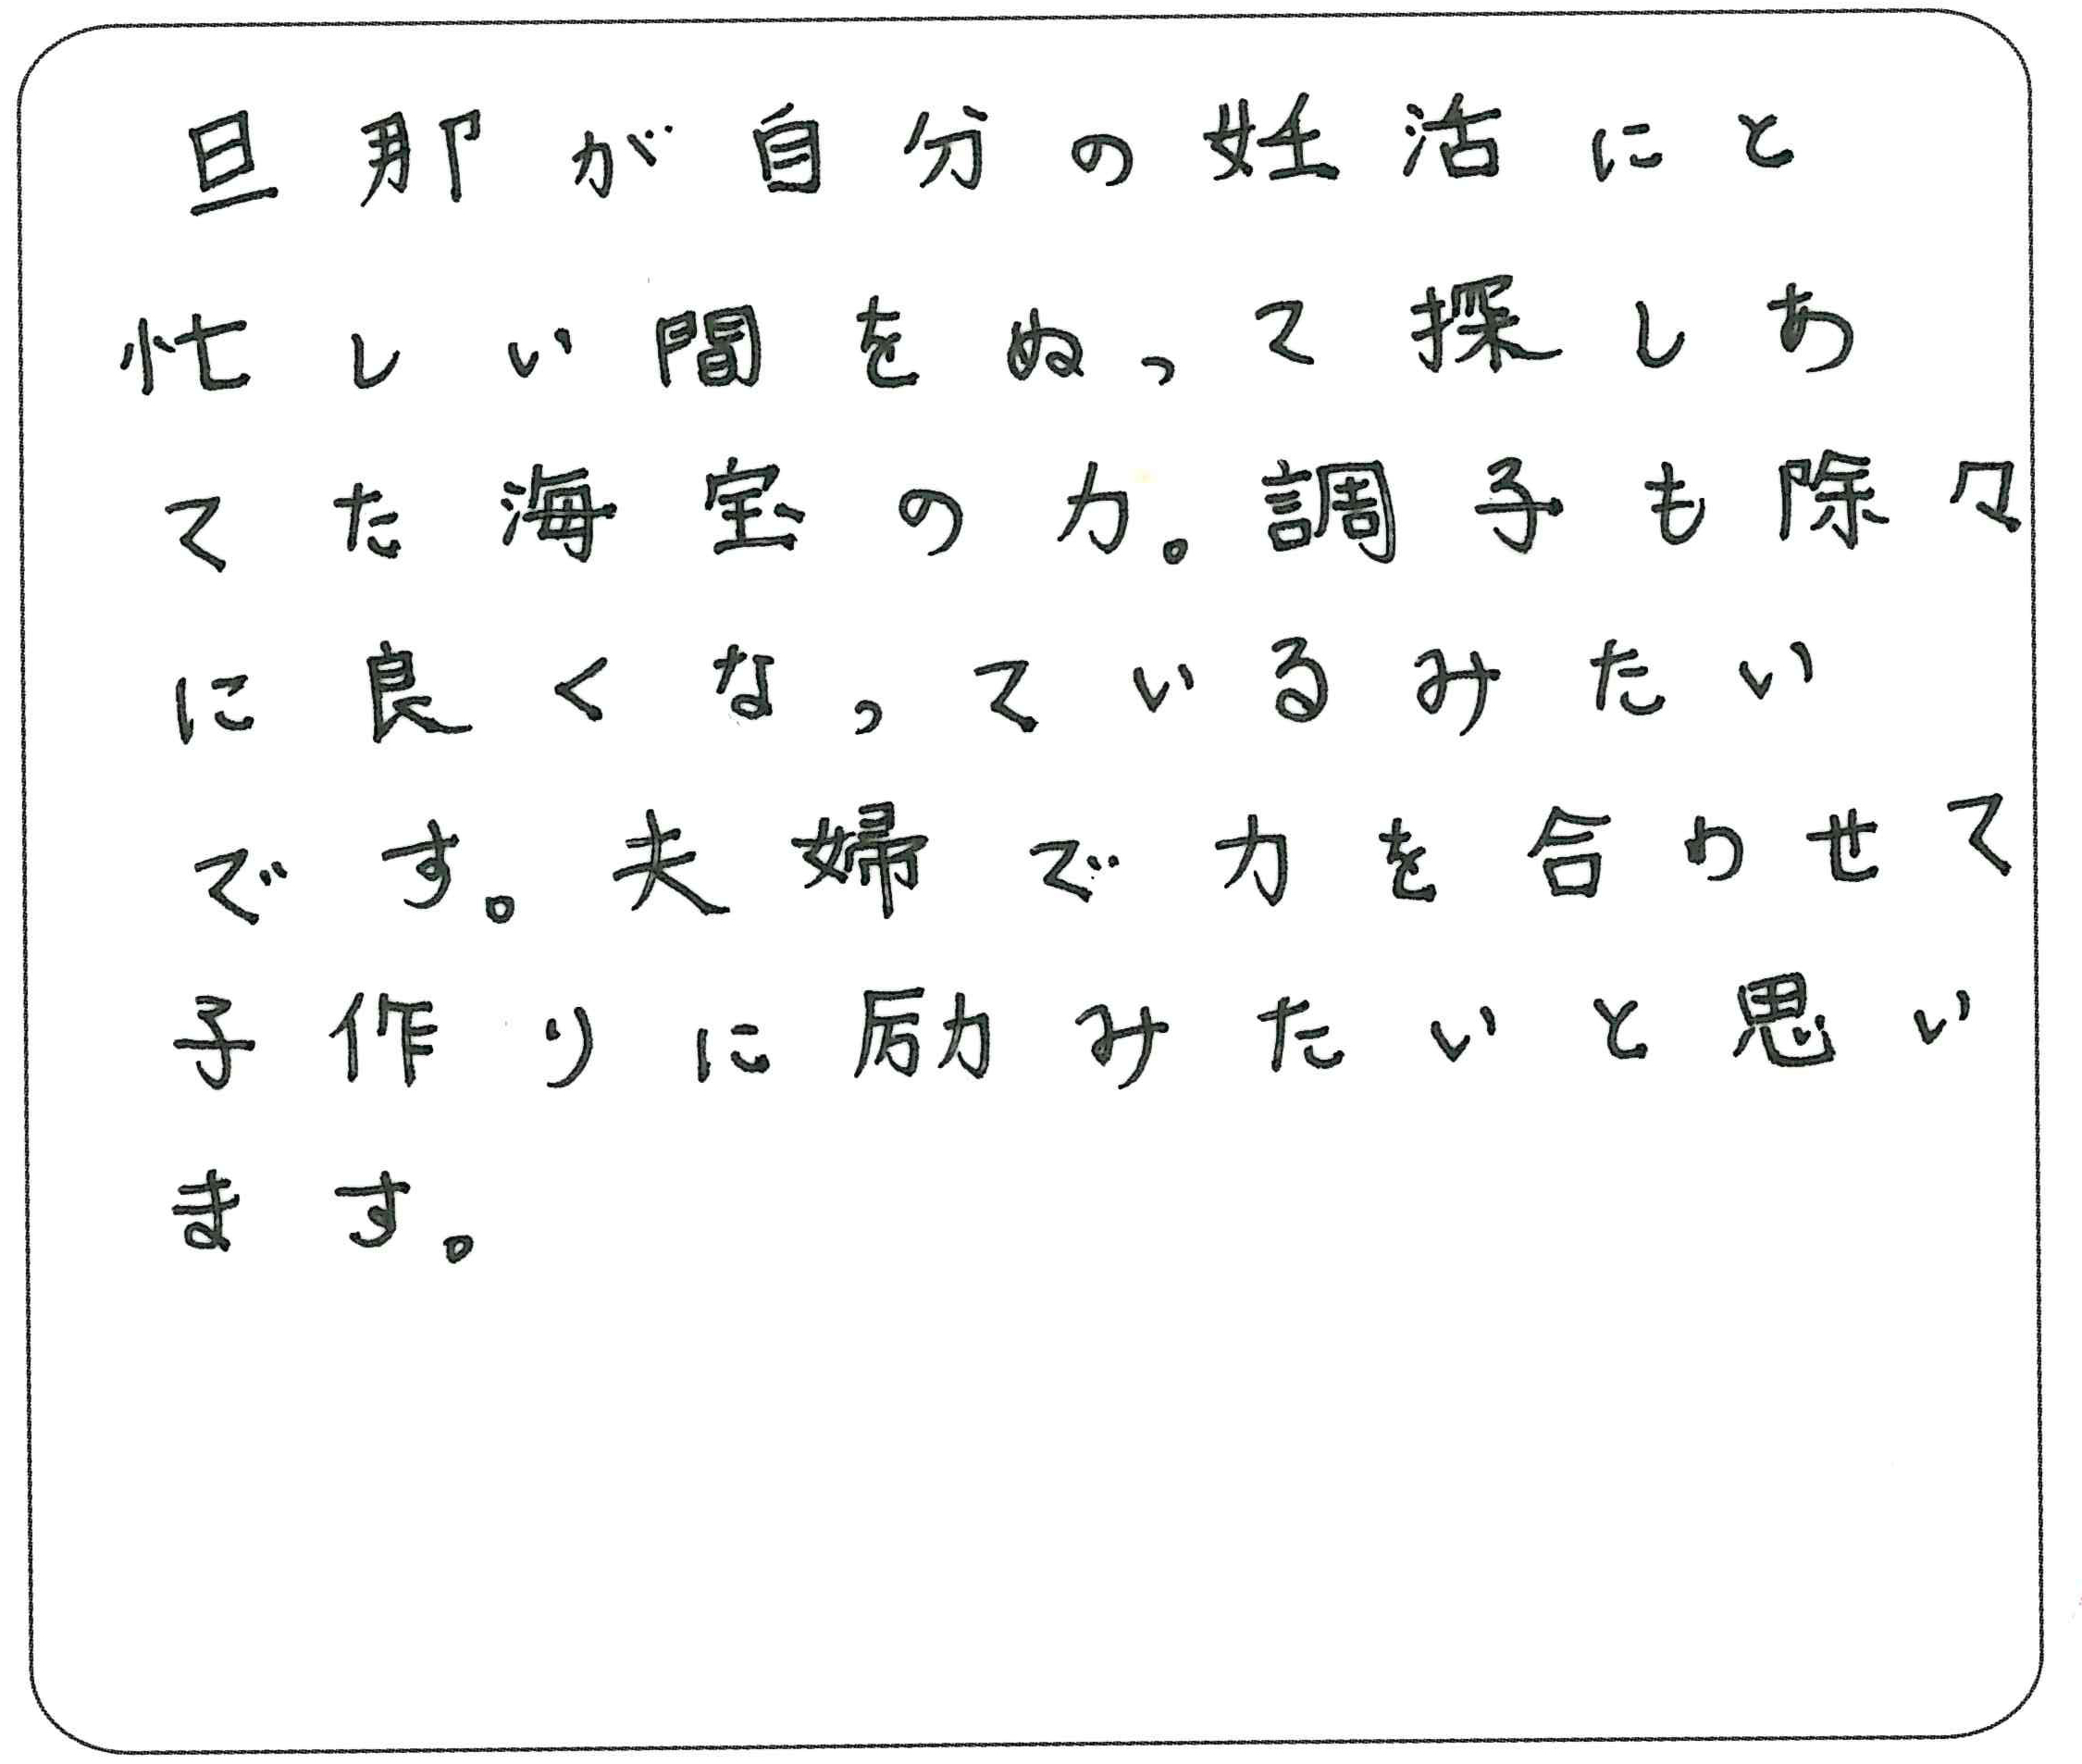 旦那が自分の妊活にと
忙しい間をぬって探しあ
てた海宝の力。調子も除々
に良くなっているみたい
です。夫婦で力を合わせて
子作りに励みたいと思い
ます。